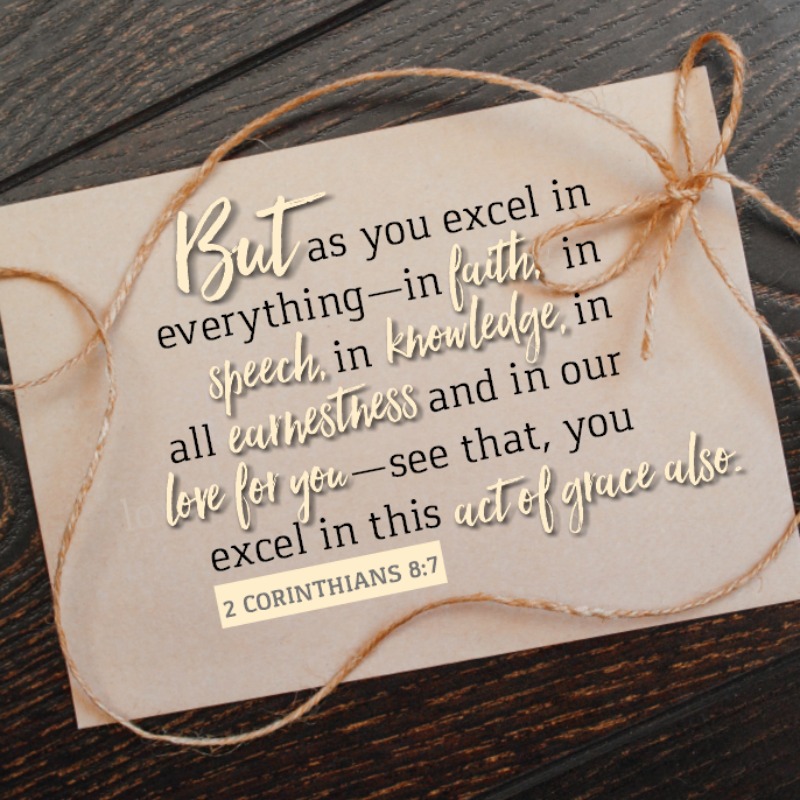 But as you excel in
everything—in faith, in
speech, in knowledge, in
all earnestness and in our
love for you—see that, you
excel in this act of grace also.
2 CORINTHIANS 8:7